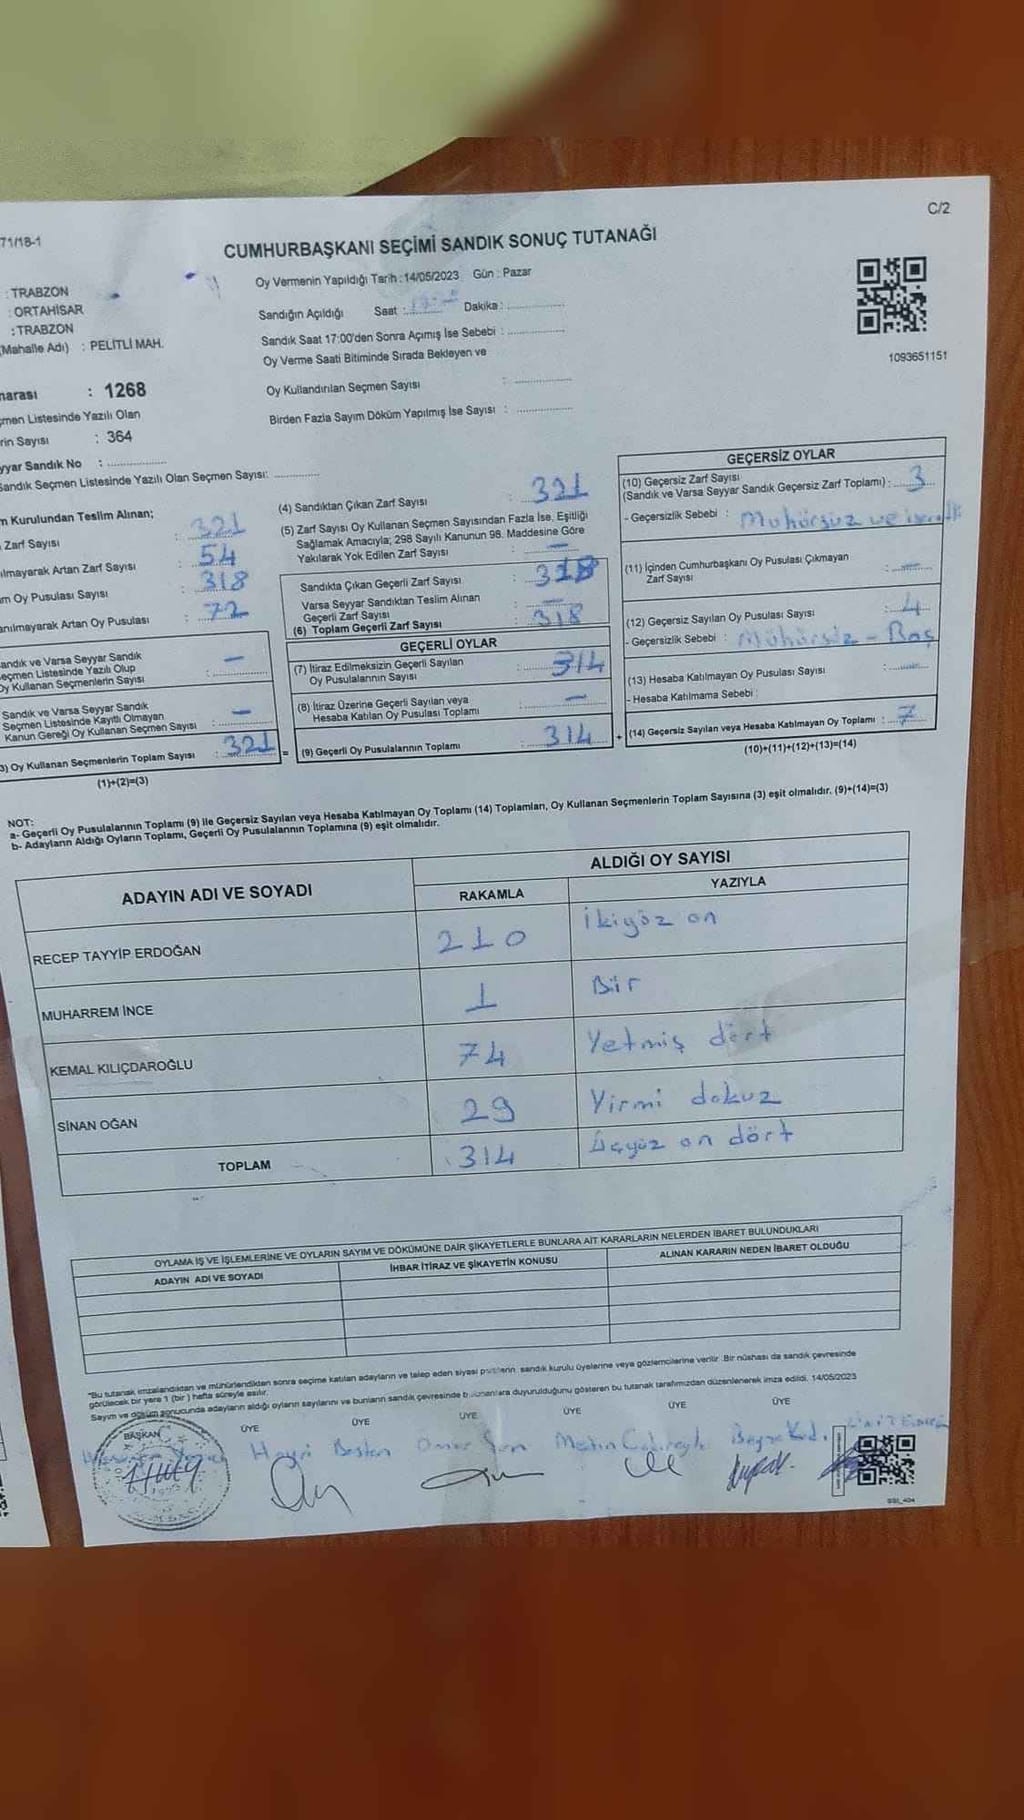 C/2
71/18-1
CUMHURBAŞKANI SEÇİMİ SANDIK SONUÇ TUTANAĞI
: TRABZON
: ORTAHİSAR
: TRABZON
(Mahalle Adı) : PELİTLİ MAH.
marası : 1268
çmen Listesinde Yazılı Olan
rin Sayısı : 364
yyar Sandık No :
Sandık Seçmen Listesinde Yazılı Olan Seçmen Sayısı:
Oy Vermenin Yapıldığı Tarih : 14/05/2023 Gün : Pazar
Sandığın Açıldığı Saat : Dakika :
Sandık Saat 17:00'den Sonra Açımış İse Sebebi :
Oy Verme Saati Bitiminde Sırada Bekleyen ve
Oy Kullandırılan Seçmen Sayısı :
Birden Fazla Sayım Döküm Yapılmış İse Sayısı :
1093651151
m Kurulundan Teslim Alınan;
Zarf Sayısı : 321
ılmayarak Artan Zarf Sayısı : 54
m Oy Pusulası Sayısı : 318
anılmayarak Artan Oy Pusulası : 72
andık ve Varsa Seyyar Sandık
eçmen Listesinde Yazılı Olup
Oy Kullanan Seçmenlerin Sayısı : —
Sandık ve Varsa Seyyar Sandık
Seçmen Listesinde Kayıtlı Olmayan
Kanun Gereği Oy Kullanan Seçmen Sayısı : —
3) Oy Kullanan Seçmenlerin Toplam Sayısı : 321 =
(1)+(2)=(3)
(4) Sandıktan Çıkan Zarf Sayısı : 321
(5) Zarf Sayısı Oy Kullanan Seçmen Sayısından Fazla İse, Eşitliği
Sağlamak Amacıyla; 298 Sayılı Kanunun 98. Maddesine Göre
Yakılarak Yok Edilen Zarf Sayısı : —
Sandıkta Çıkan Geçerli Zarf Sayısı : 318
Varsa Seyyar Sandıktan Teslim Alınan
Geçerli Zarf Sayısı : —
(6) Toplam Geçerli Zarf Sayısı : 318
GEÇERLİ OYLAR
(7) İtiraz Edilmeksizin Geçerli Sayılan
Oy Pusulalarının Sayısı : 314
(8) İtiraz Üzerine Geçerli Sayılan veya
Hesaba Katılan Oy Pusulası Toplamı : —
(9) Geçerli Oy Pusulalarının Toplamı : 314 +
GEÇERSİZ OYLAR
(10) Geçersiz Zarf Sayısı
(Sandık ve Varsa Seyyar Sandık Geçersiz Zarf Toplamı) : 3
- Geçersizlik Sebebi : Mühürsüz ve
(11) İçinden Cumhurbaşkanı Oy Pusulası Çıkmayan
Zarf Sayısı : —
(12) Geçersiz Sayılan Oy Pusulası Sayısı : 4
- Geçersizlik Sebebi : Mühürsiz - Boş
(13) Hesaba Katılmayan Oy Pusulası Sayısı :
- Hesaba Katılmama Sebebi :
(14) Geçersiz Sayılan veya Hesaba Katılmayan Oy Toplamı : 7
(10)+(11)+(12)+(13)=(14)
NOT:
a- Geçerli Oy Pusulalarının Toplamı (9) ile Geçersiz Sayılan veya Hesaba Katılmayan Oy Toplamı (14) Toplamları, Oy Kullanan Seçmenlerin Toplam Sayısına (3) eşit olmalıdır. (9)+(14)=(3)
b- Adayların Aldığı Oyların Toplamı, Geçerli Oy Pusulalarının Toplamına (9) eşit olmalıdır.
ADAYIN ADI VE SOYADI
ALDIĞI OY SAYISI
RAKAMLA YAZIYLA
RECEP TAYYİP ERDOĞAN 210 İkiyüz on
MUHARREM İNCE 1 Bir
KEMAL KILIÇDAROĞLU 74 Yetmiş dört
SİNAN OĞAN 29 Yirmi dokuz
TOPLAM 314 Üçyüz on dört
OYLAMA İŞ VE İŞLEMLERİNE VE OYLARIN SAYIM VE DÖKÜMÜNE DAİR ŞİKAYETLERLE BUNLARA AİT KARARLARIN NELERDEN İBARET BULUNDUKLARI
ADAYIN ADI VE SOYADI
İHBAR İTİRAZ VE ŞİKAYETİN KONUSU
ALINAN KARARIN NEDEN İBARET OLDUĞU
"Bu tutanak imzalandıktan ve mühürlendikten sonra seçime katılan adayların ve talep eden siyasi partilerin, sandık kurulu üyelerine veya gözlemcilerine verilir. Bir nüshası da sandık çevresinde
görülecek bir yere 1 (bir) hafta süreyle asılır.
Sayım ve döküm sonucunda adayların aldığı oyların sayılarını ve bunların sandık çevresinde bulunanlara duyurulduğunu gösteren bu tutanak tarafımızdan düzenlenerek imza edildi. 14/05/2023
BAŞKAN ÜYE ÜYE ÜYE ÜYE ÜYE ÜYE
Hayri Bostan